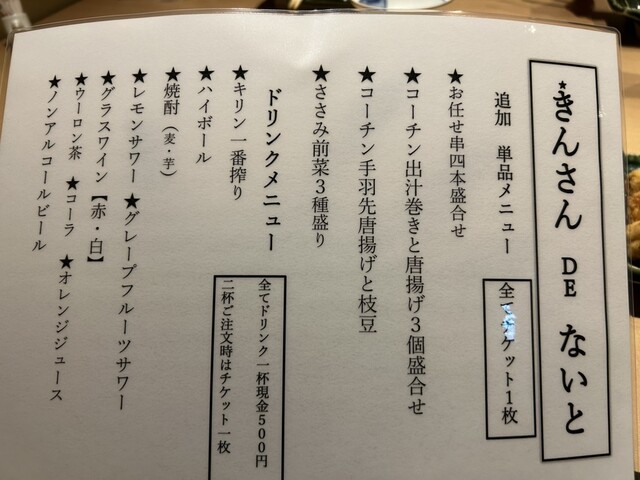 ★きんさん DE ないと
追加 単品メニュー
全 ケット1枚
★お任せ串四本盛合せ
★コーチン出汁巻きと唐揚げ3個盛合せ
★コーチン手羽先唐揚げと枝豆
★ささみ前菜3種盛り
ドリンクメニュー
全てドリンク一杯現金500円
二杯ご注文時はチケット一枚
★キリン一番搾り
★ハイボール
★焼酎(麦・芋)
★レモンサワー ★グレープフルーツサワー
★グラスワイン【赤・白】
★ウーロン茶 ★コーラ ★オレンジジュース
★ノンアルコールビール